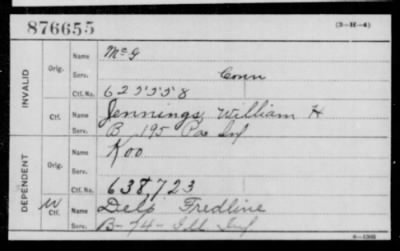 876655 (3-H-4)
INVALID
Orig. Name McG
Serv. Conn
Ctf. No. 625558
Ctf. Name Jennings, William H
Serv. B, 195 Pa Inf
DEPENDENT
Orig. Name Koo
Serv.
638,723
W Ctf. Name Dels Fredline
Serv. B-74- Ill Inf